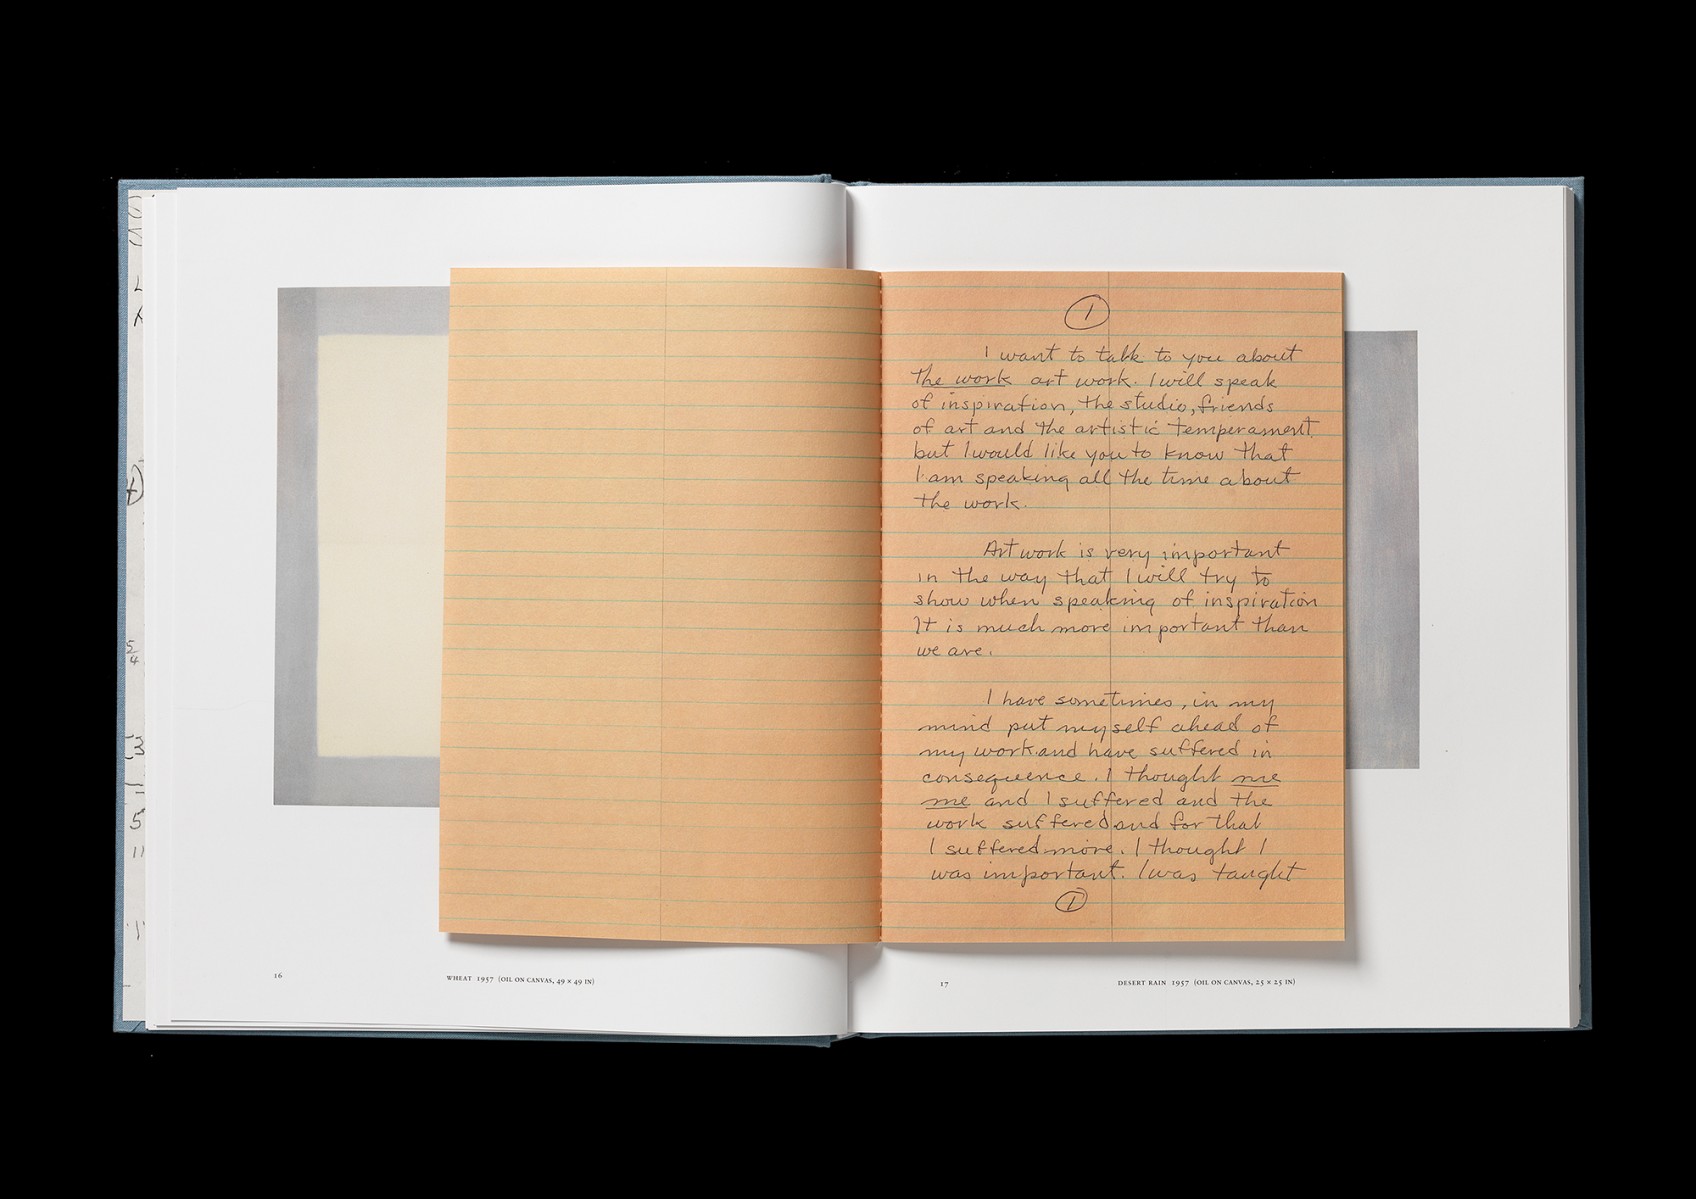 1
I want to talk to you about
the work art work. I will speak
of inspiration, the studio, friends
of art and the artistic temperament
but I would like you to know that
I am speaking all the time about
the work.
Art work is very important
in the way that I will try to
show when speaking of inspiration
It is much more important than
we are.
I have sometimes, in my
mind put myself ahead of
my work and have suffered in
consequence. I thought me
me and I suffered and the
work suffered and for that
I suffered more. I thought I
was important. I was taught
1
16
WHEAT 1957 (OIL ON CANVAS, 49 × 49 IN)
17
DESERT RAIN 1957 (OIL ON CANVAS, 25 × 25 IN)
5/4
3
5
11